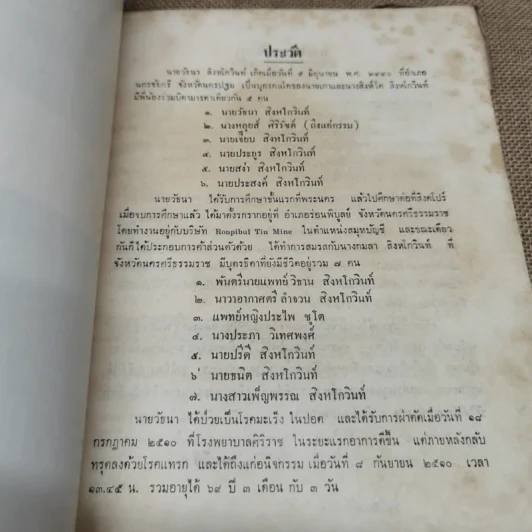 ประวัติ
นายวัธนา สิงหโกวินท์ เกิดเมื่อวันที่ ๕ มิถุนายน พ.ศ. ๒๔๔๑ ที่อำเภอ
นครชัยศรี จังหวัดนครปฐม เป็นบุตรคนโตของนายเกาและนางสิงห์โต สิงหโกวินท์
มีพี่น้องร่วมบิดามารดาเดียวกัน ๕ คน
๑. นายวัธนา สิงหโกวินท์
๒. นางหลุยส์ ศิริรัษต์ (ถึงแก่กรรม)
๓. นายเจียบ สิงหโกวินท์
๔. นายประยูร สิงหโกวินท์
๕. นายสง่า สิงหโกวินท์
๖. นายประสงค์ สิงหโกวินท์
นายวัธนา ได้รับการศึกษาชั้นแรกที่พระนคร แล้วไปศึกษาต่อที่สิงคโปร์
เมื่อจบการศึกษาแล้ว ได้มาตั้งรกรากอยู่ที่ อำเภอร่อนพิบูลย์ จังหวัดนครศรีธรรมราช
โดยทำงานอยู่กับบริษัท Ronpibul Tin Mine ในตำแหน่งสมุหบัญชี และขณะเดียว
กันก็ได้ประกอบการค้าส่วนตัวด้วย ได้ทำการสมรสกับนางกมลา สิงหโกวินท์ ที่
จังหวัดนครศรีธรรมราช มีบุตรธิดาที่ยังมีชีวิตอยู่รวม ๗ คน
๑. พันตรีนายแพทย์วิชาน สิงหโกวินท์
๒. นาวาอากาศตรีลำจวน สิงหโกวินท์
๓. แพทย์หญิงประไพ ชูโต
๔. นางประภา วิเทศพงศ์
๕. นายปรีดี สิงหโกวินท์
๖ นายธนิต สิงหโกวินท์
๗. นางสาวเพ็ญพรรณ สิงหโกวินท์
นายวัธนา ได้ป่วยเป็นโรคมะเร็งในปอด และได้รับการผ่าตัดเมื่อวันที่ ๑๘
กรกฎาคม ๒๕๑๐ ที่โรงพยาบาลศิริราช ในระยะแรกอาการดีขึ้น แต่ภายหลังกลับ
ทรุดลงด้วยโรคแทรก และได้ถึงแก่อนิจกรรม เมื่อวันที่ ๘ กันยายน ๒๕๑๐ เวลา
๑๓.๔๕ น. รวมอายุได้ ๖๙ ปี ๓ เดือน กับ ๓ วัน